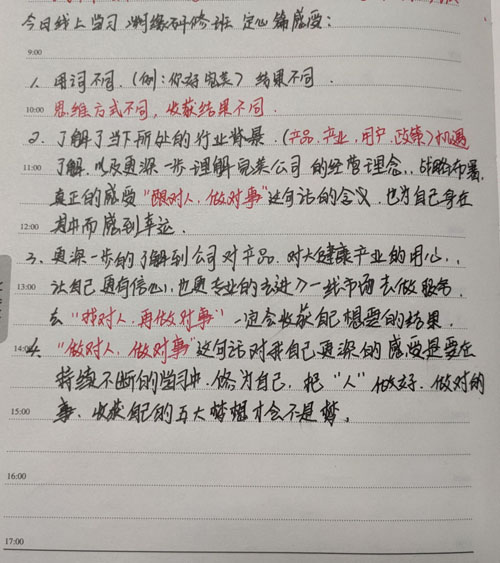 今日线上学习 研修班 定心篇感受：
9:00
1. 用词不同.（例：你好完美）结果不同.
10:00 思维方式不同，收获结果不同.
2. 了解了当下所处的行业背景.（产品.产业，用户，政策）机遇
11:00 了解.以及更深一步理解完美公司的经营理念，战略布署.
真正的感受“跟对人，做对事”这句话的含义.也为自己身在
12:00 其中而感到幸运.
3. 更深一步的了解到公司对产品.对大健康产业的用心，
13:00 让自己更有信心，也更专业的去进入一线市场去做服务.
去“找对人，再做对事”一定会收获自己想要的结果.
14:00 4. “做对人，做对事”这句话对我自己更深的感受是要在
持续不断的学习中.修为自己.把“人”做好.做对的
15:00 事.收获自己的五大梦想才会不是梦。
16:00
17:00